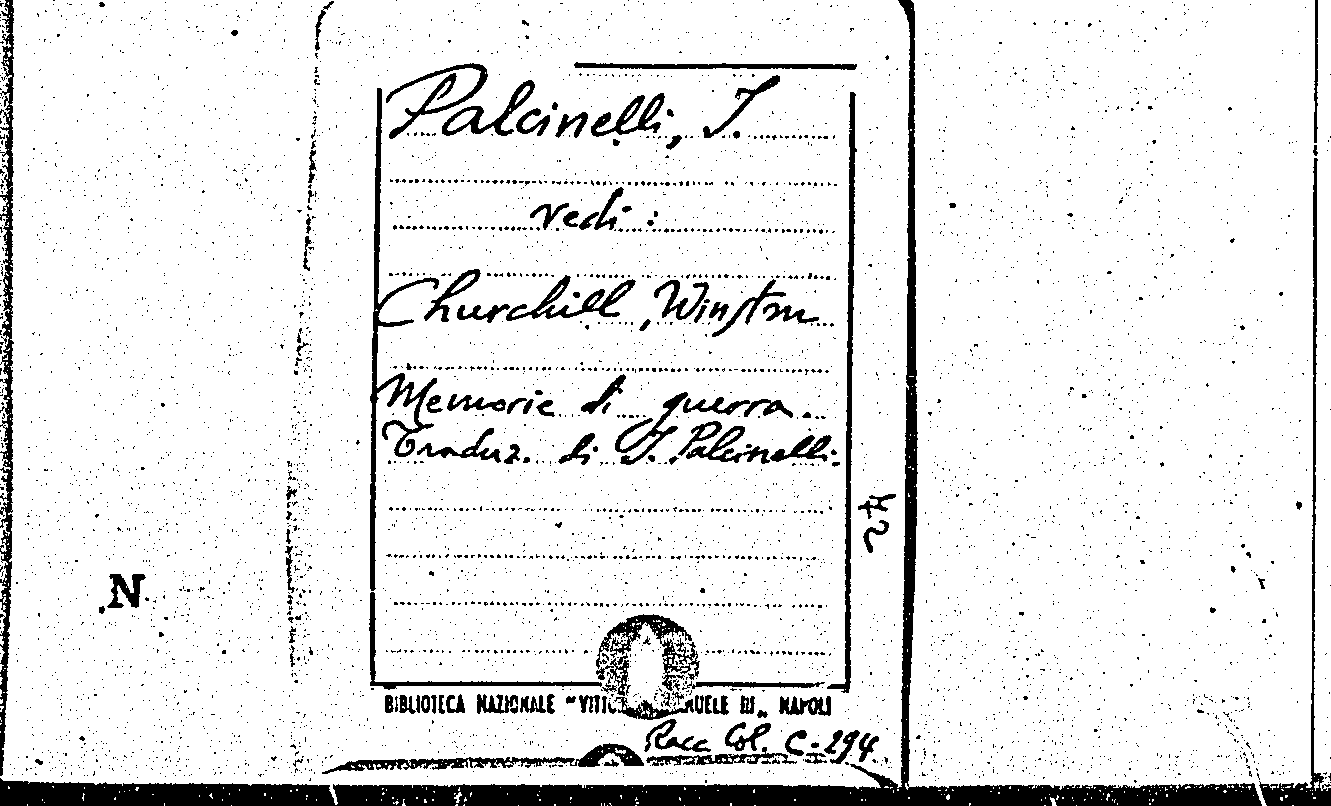 Palcinelli, J.
vedi:
Churchill, Winston
Memorie di guerra.
Traduz. di J. Palcinelli.
N
BIBLIOTECA NAZIONALE "VITTO UELE III„ NAPOLI
Racc Col. C-294